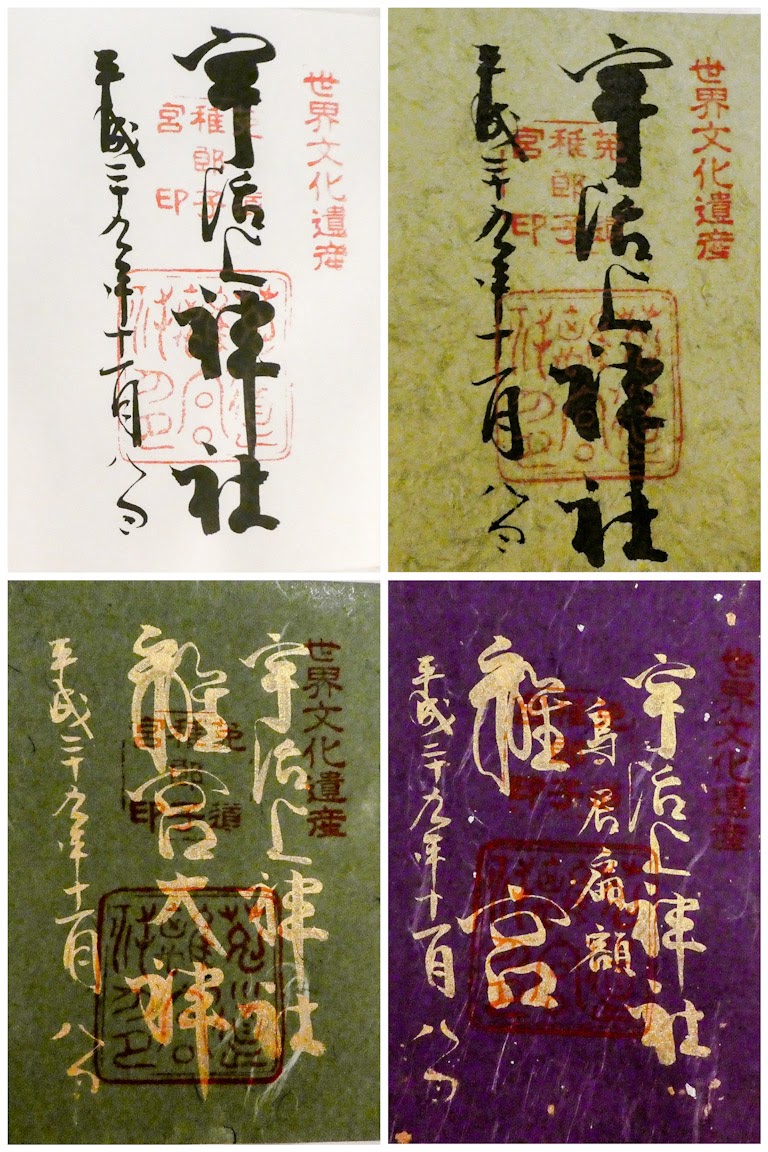 世界文化遺産
宇治上神社
菟道
稚郎子
宮印
平成二十九年十一月八日
世界文化遺産
宇治上神社
菟道
稚郎子
宮印
平成二十九年十一月八日
世界文化遺産
宇治上神社
離宮大神
菟道
稚郎子
宮印
平成二十九年十一月八日
世界文化遺産
宇治上神社
鳥居扁額
離宮
平成二十九年十一月八日